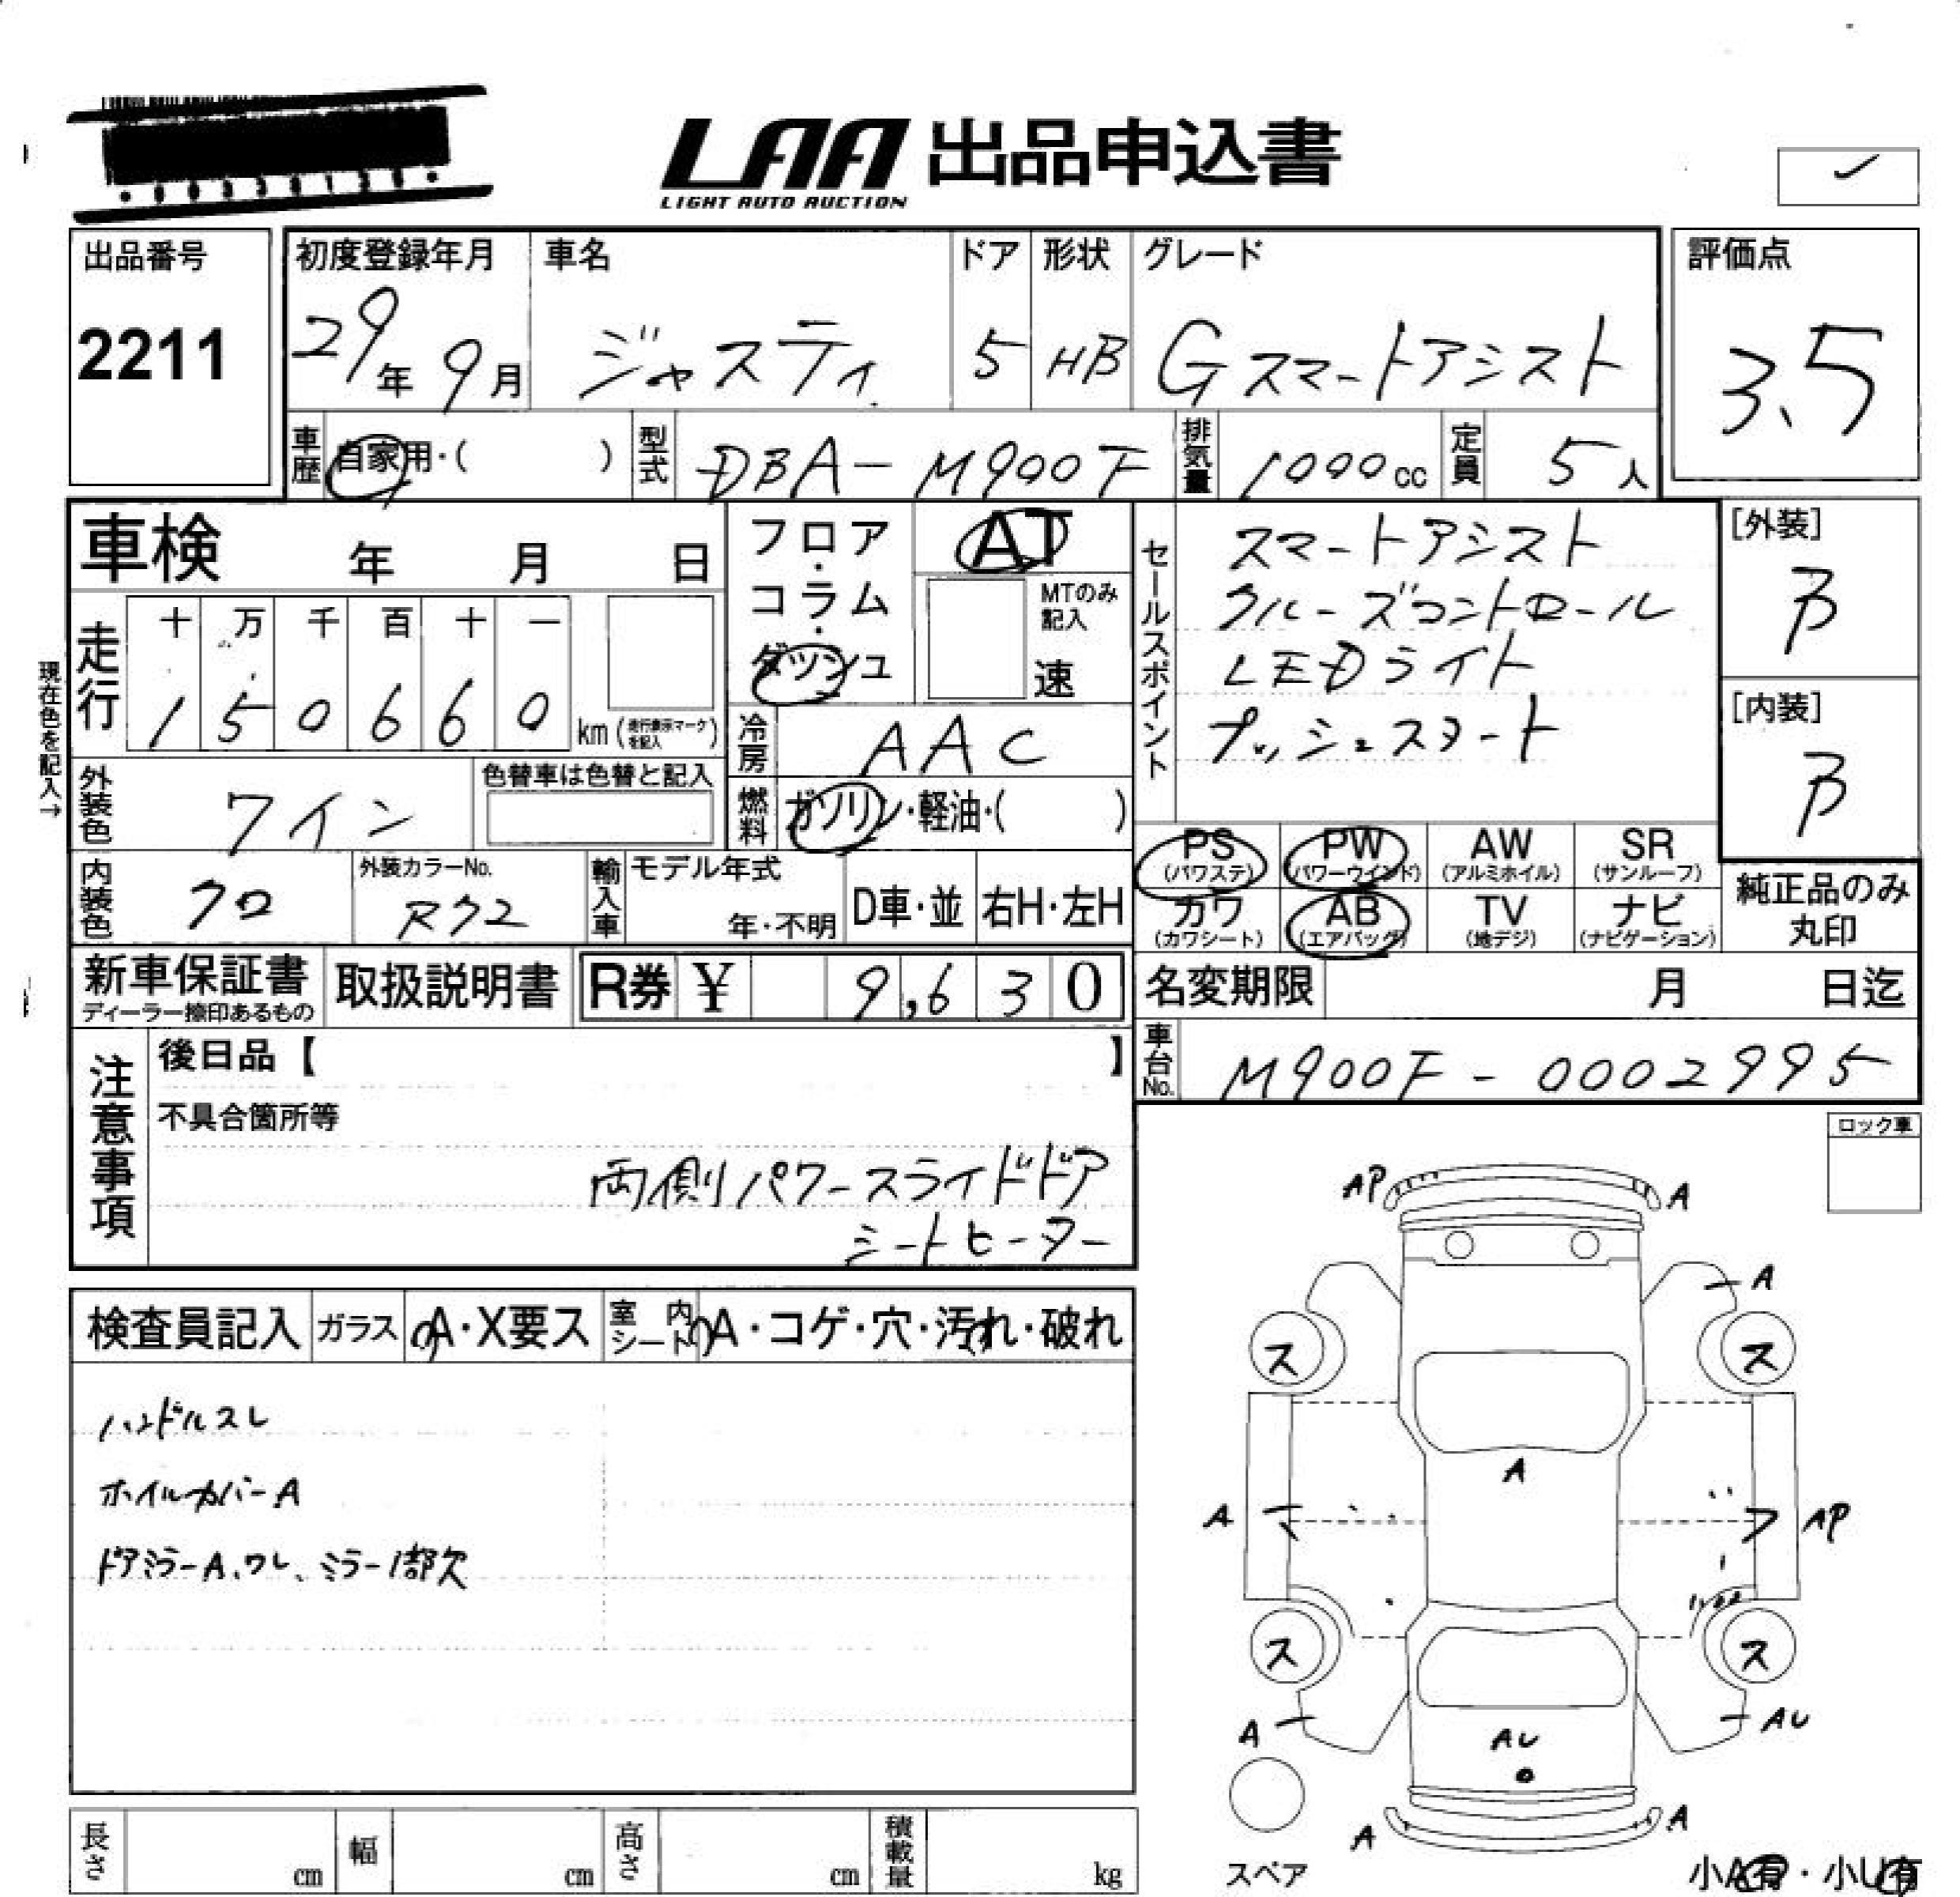 LAA 出品申込書
LIGHT AUTO AUCTION
出品番号
2211
初度登録年月
29年 9月
車名
ジャスティ
ドア
5
形状
HB
グレード
Gスマートアシスト
評価点
3.5
車歴 自家用・( )
型式 DBA-M900F
排気量 1000cc
定員 5人
車検 年 月 日
走行
十 万 千 百 十 一
1 5 0 6 6 0 km(走行表示マークを記入)
現在色を記入→
フロア・コラム・ダッシュ
AT
MTのみ記入
速
冷房 AAC
燃料 ガソリン・軽油・( )
セールスポイント
スマートアシスト
クルーズコントロール
LEDライト
プッシュスタート
[外装]
B
[内装]
B
外装色 ワイン
色替車は色替と記入
内装色 クロ
外装カラーNo.
輸入車
モデル年式
年・不明
D車・並
右H・左H
PS (パワステ)
PW (パワーウインド)
AW (アルミホイル)
SR (サンルーフ)
カワ (カワシート)
AB (エアバッグ)
TV (地デジ)
ナビ (ナビゲーション)
純正品のみ丸印
新車保証書
ディーラー捺印あるもの
取扱説明書
R券 ¥ 9,630
名変期限 月 日迄
車台No. M900F-0002995
注意事項
後日品【 】
不具合箇所等
両側パワースライドドア
シートヒーター
ロック車
検査員記入
ガラス A・X要ス
室内シート A・コゲ・穴・汚れ・破れ
ハンドルスレ
ホイルカバーA
ドアミラーA、ワレ、ミラー1部欠
AP
A
A
ス
ス
A
A
AP
ス
ス
A
AU
AU
A
A
スペア
小A有・小U有
長さ cm
幅 cm
高さ cm
積載量 kg